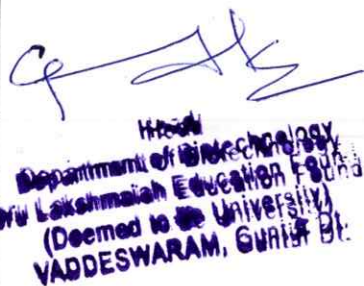 Head
Department of Biotechnology
Lakshmaiah Education Found
(Deemed to be University)
VADDESWARAM, Guntur Dt.